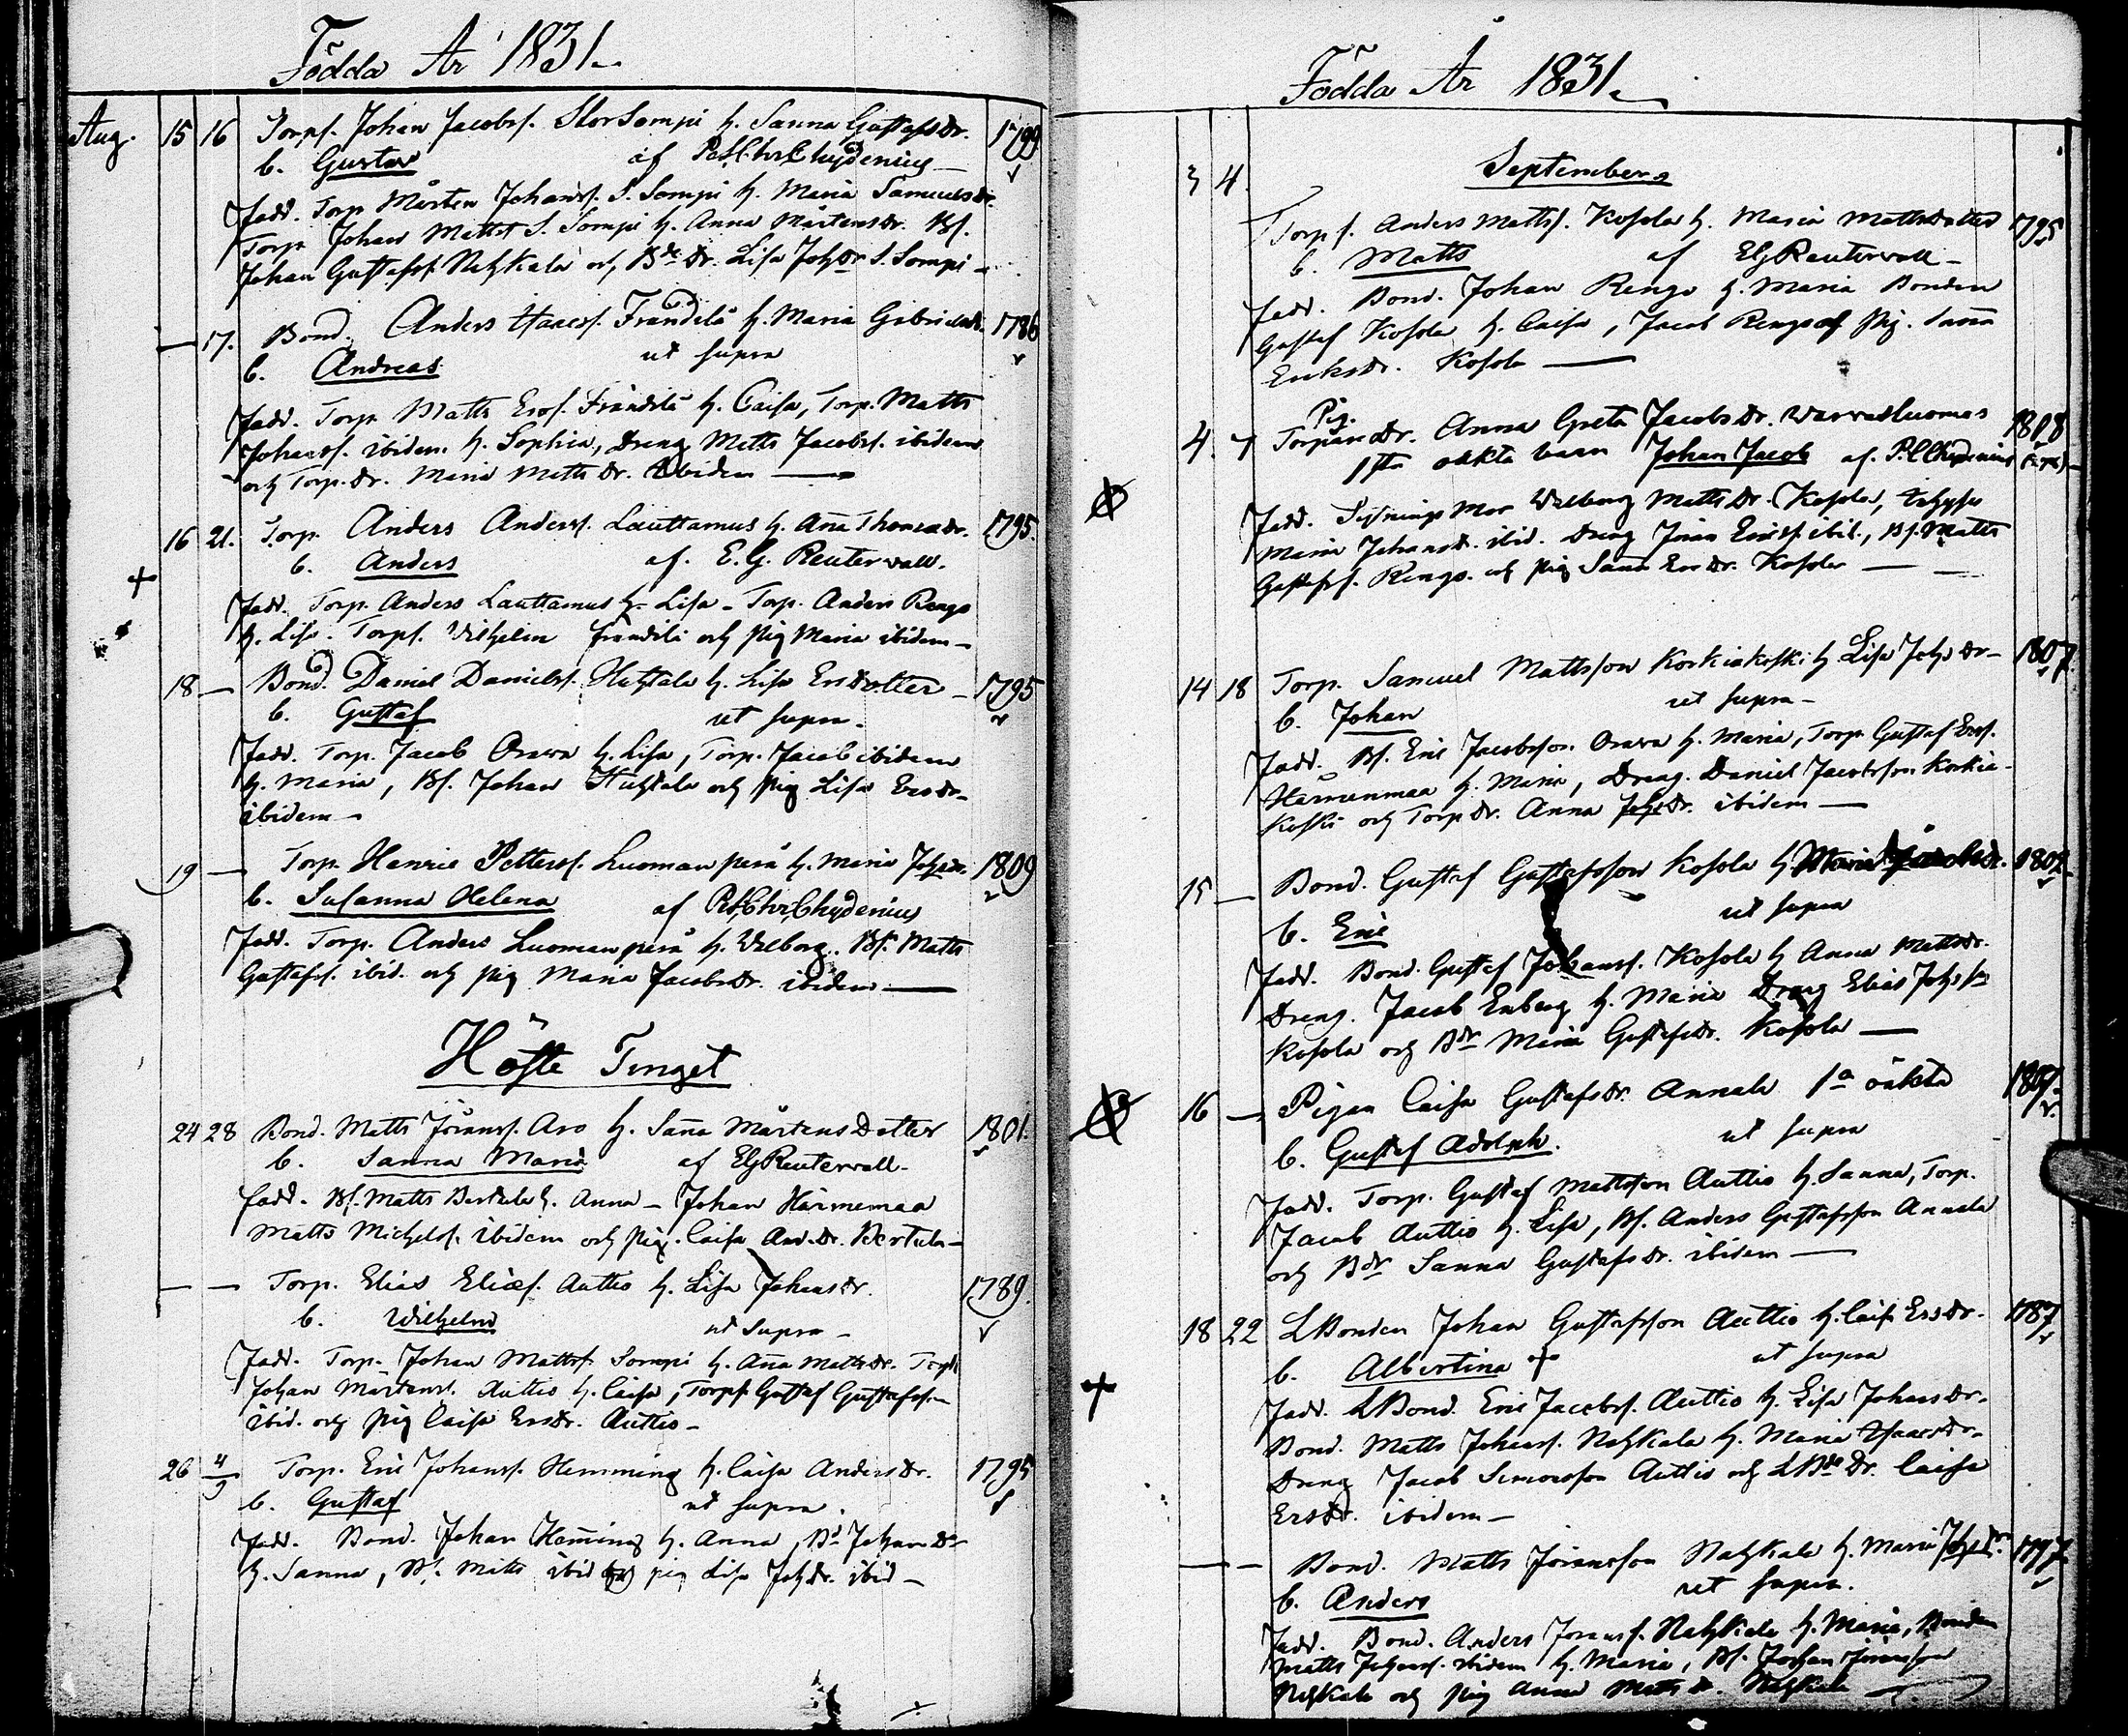 Födda År 1831.
Aug. 15 16 Torpf. Johan Jacobsf. StorSompi h. Sanna Gustafsdr. 1799
b. Gustav af Pet. Chr. Chydenius
Fadd. Torp. Mårten Johansf. S. Sompi h. Maria Samuelsdr.
Torp. Johan Matts S. Sompi h. Anna Mårtensdr. Bf.
Johan Gustafsf. Nahkala och Bde Dr. Lisa Johdr S. Sompi
17. Bond. Anders Isacsf. Frändilä h. Maria Gabrielsdr. 1786
b. Andreas ut supra
Fadd. Torp. Matts Ersf. Frändilä h. Caisa, Torp. Matts
Johansf. ibidem h. Sophia, Dreng Matts Jacobsf. ibidem
och Torp. Dr. Maria Matts Dr. ibidem
16 21. Torp. Anders Andersf. Lauttamus h. Aña Thomasdr. 1795.
b. Anders af. E. G. Reuterwall.
Fadd. Torp. Anders Lauttamus h. Lisa - Torp. Anders Rengo
h. Lisa. Torpf. Wilhelm Frändilä och pig Maria ibidem
18 — Bond. Daniel Danielsf. Huhtala h. Lisa Ersdotter 1795
b. Gustaf ut supra.
Fadd. Torp. Jacob Orawa h. Lisa, Torp. Jacob ibidem
h. Maria, Bf. Johan Huhtala och pig Lisa Ersdr.
ibidem
19 — Torp. Henric Pettersf. Luomanperä h. Maria Johsdr. 1809
b. Susanna Helena af Pet. Chr. Chydenius
Fadd. Torp. Anders Luomanperä h. Walborg. Bf. Matts
Gustafsf. ibid. och pig Maria Jacobsdr. ibidem
Höste Tinget
24 28 Bond. Matts Jöransf. Aro h. Saña Mårtensdotter 1801.
b. Sanna Maria af EGReuterwall
Fadd. Bf. Matts Bertula h. Anna - Johan Härmemaa
Matts Michelsf. ibidem och pig. Caisa And. Dr. Bertula
— — Torp. Elias Eliæf. Auttio h. Lisa Johansdr. 1789.
b. Wilhelm ut supra
Fadd. Torp. Johan Mattsf. Sompi h. Aña Mattsdr. Torp.
Johan Mårtensf. Auttio h. Caisa, Torpf. Gustaf Gustafsson
ibid. och pig Caisa Ersdr. Auttio
26 4/9 Torp. Eric Johansf. Hemming h. Caisa Andersdr. 1795
b. Gustaf ut supra.
Fadd. Bond. Johan Hemming h. Anna, Bd Johan
h. Sanna, Bf. Matts ibid och pig Lisa Johdr. ibid
Födda År 1831.
September
3 4. Torpf. Anders Mattsf. Kosola h. Maria Mattsdotter 1795
b. Matts af EGReuterwall
Fadd. Bond. Johan Rengo h. Maria Bonden
Gustaf Kosola h. Caisa, Jacob Rengo och Pig. Saña
Eriksdr. Kosola
Pig.
4. 7 Torpare dr. Anna Greta Jacobsdr. Warvasluomas 1808
1sta oäkta barn Johan Jacob af. P. C. Chydenius
Fadd. Sytnings Mor Walborg Mattsdr. Kosola,
Maria Johansdr. ibid. Dreng Jöran Ericsf. ibid., Bf. Matts
Gustafsf. Rengo. och pig Saña Ersdr. Kosola
14 18 Torp. Samuel Mattsson Korkiakoski h. Lisa Johsdr. 1807.
b. Johan ut supra
Fadd. Bf. Eric Jacobsson Orawa h. Maria, Torp. Gustaf Ersf.
Harmenmaa h. Maria, Dreng. Daniel Jacobsson Korkia-
koski och Torp Dr. Anna Johsdr. ibidem
15 — Bond. Gustaf Gustafsson Kosola h. Maria 1802
b. Eric ut supra
Fadd. Bond. Gustaf Johansf. Kosola h. Anna Mattsdr.
Dreng. Jacob Enberg h. Maria Dreng Elias Johsson
Kosola och Bdr Maria Gustafsdr. Kosola
16 — Pigan Caisa Gustafsdr. Annala 1a oäkta
b. Gustaf Adolph. ut supra
Fadd. Torp. Gustaf Mattsson Auttio h. Sanna, Torp.
Jacob Auttio h. Lisa, Bf. Anders Gustafsson Annala
och Bdr Sanna Gustafsdr. ibidem
18 22 LBonden Johan Gustafsson Auttio h. Caisa Ersdr. 1787
b. Albertina ut supra
Fadd. LBond. Eric Jacobsf. Auttio h. Lisa Johansdr.
Bond. Matts Johansf. Nahkala h. Maria Isacsdr.
Dreng Jacob Simonsson Auttio och LBde Dr. Caisa
Ersdr. ibidem
— — Bond. Matts Jöransson Nahkala h. Maria Johsdr. 1797
b. Anders ut supra.
Fadd. Bond. Anders Jöransf. Nahkala h. Maria, Bonden
Matts Johansf. ibidem h. Maria, Bf. Johan Jöransson
Nahkala och pig Anna Matts dr. Nahkala